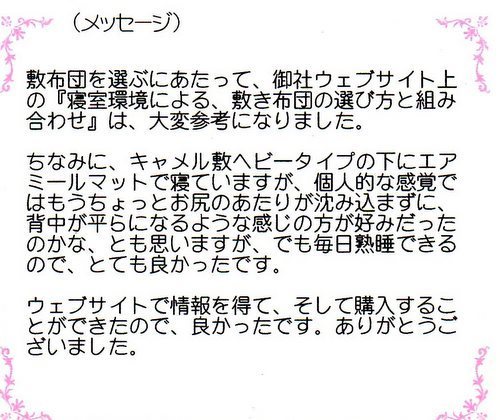 （メッセージ）
敷布団を選ぶにあたって、御社ウェブサイト上
の『寝室環境による、敷き布団の選び方と組み
合わせ』は、大変参考になりました。
ちなみに、キャメル敷ヘビータイプの下にエア
ミールマットで寝ていますが、個人的な感覚で
はもうちょっとお尻のあたりが沈み込まずに、
背中が平らになるような感じの方が好みだった
のかな、とも思いますが、でも毎日熟睡できる
ので、とても良かったです。
ウェブサイトで情報を得て、そして購入するこ
とができたので、良かったです。ありがとうご
ざいました。